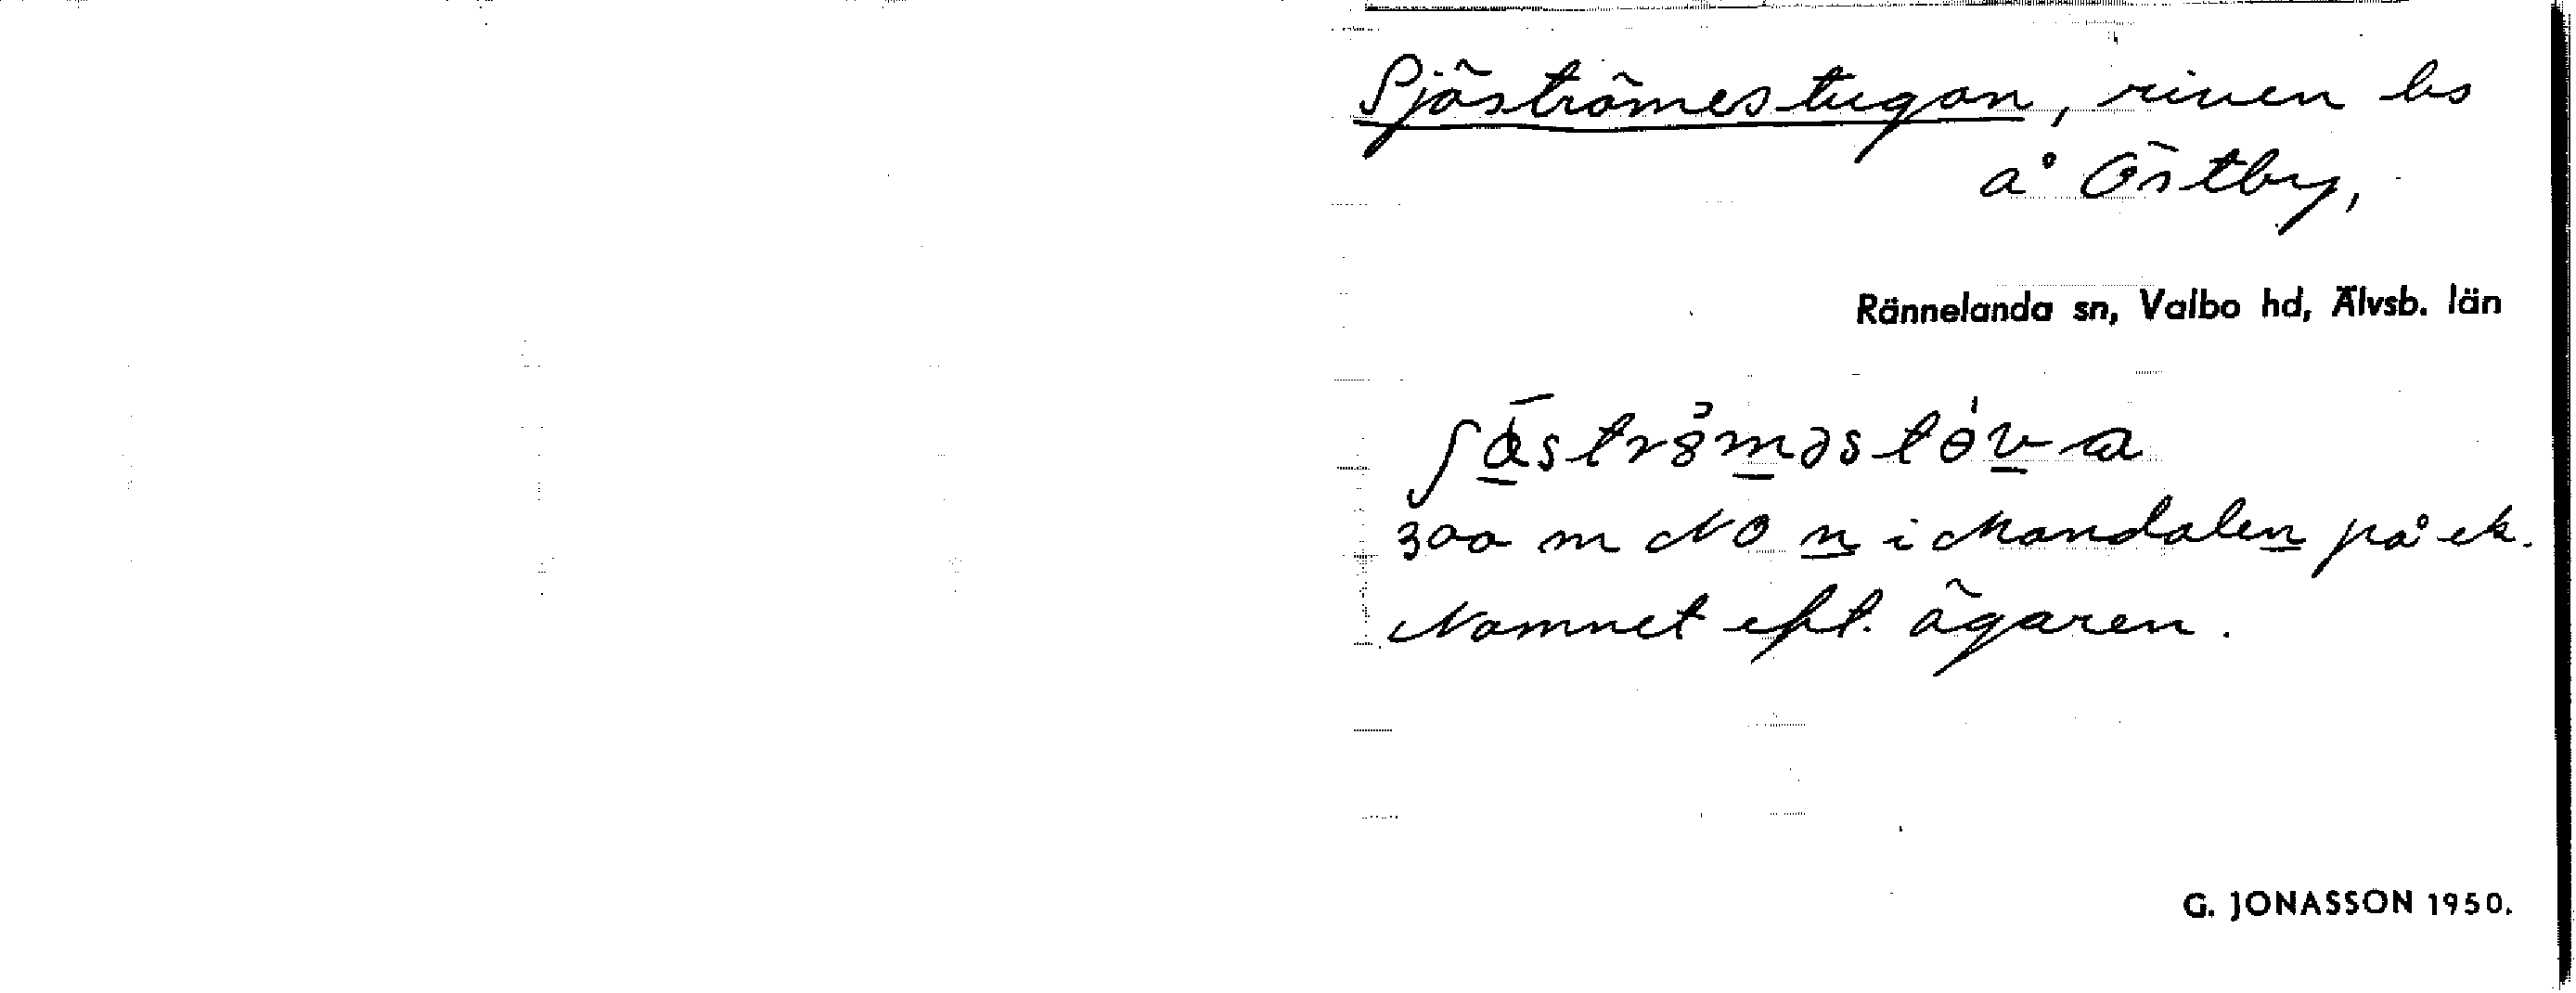 Sjöströmestugan, riven bs
å Östby,
Rännelanda sn, Valbo hd, Älvsb. län
300 m NO n i Mandalen på ek.
Namnet eft. ägaren.
G. JONASSON 1950.